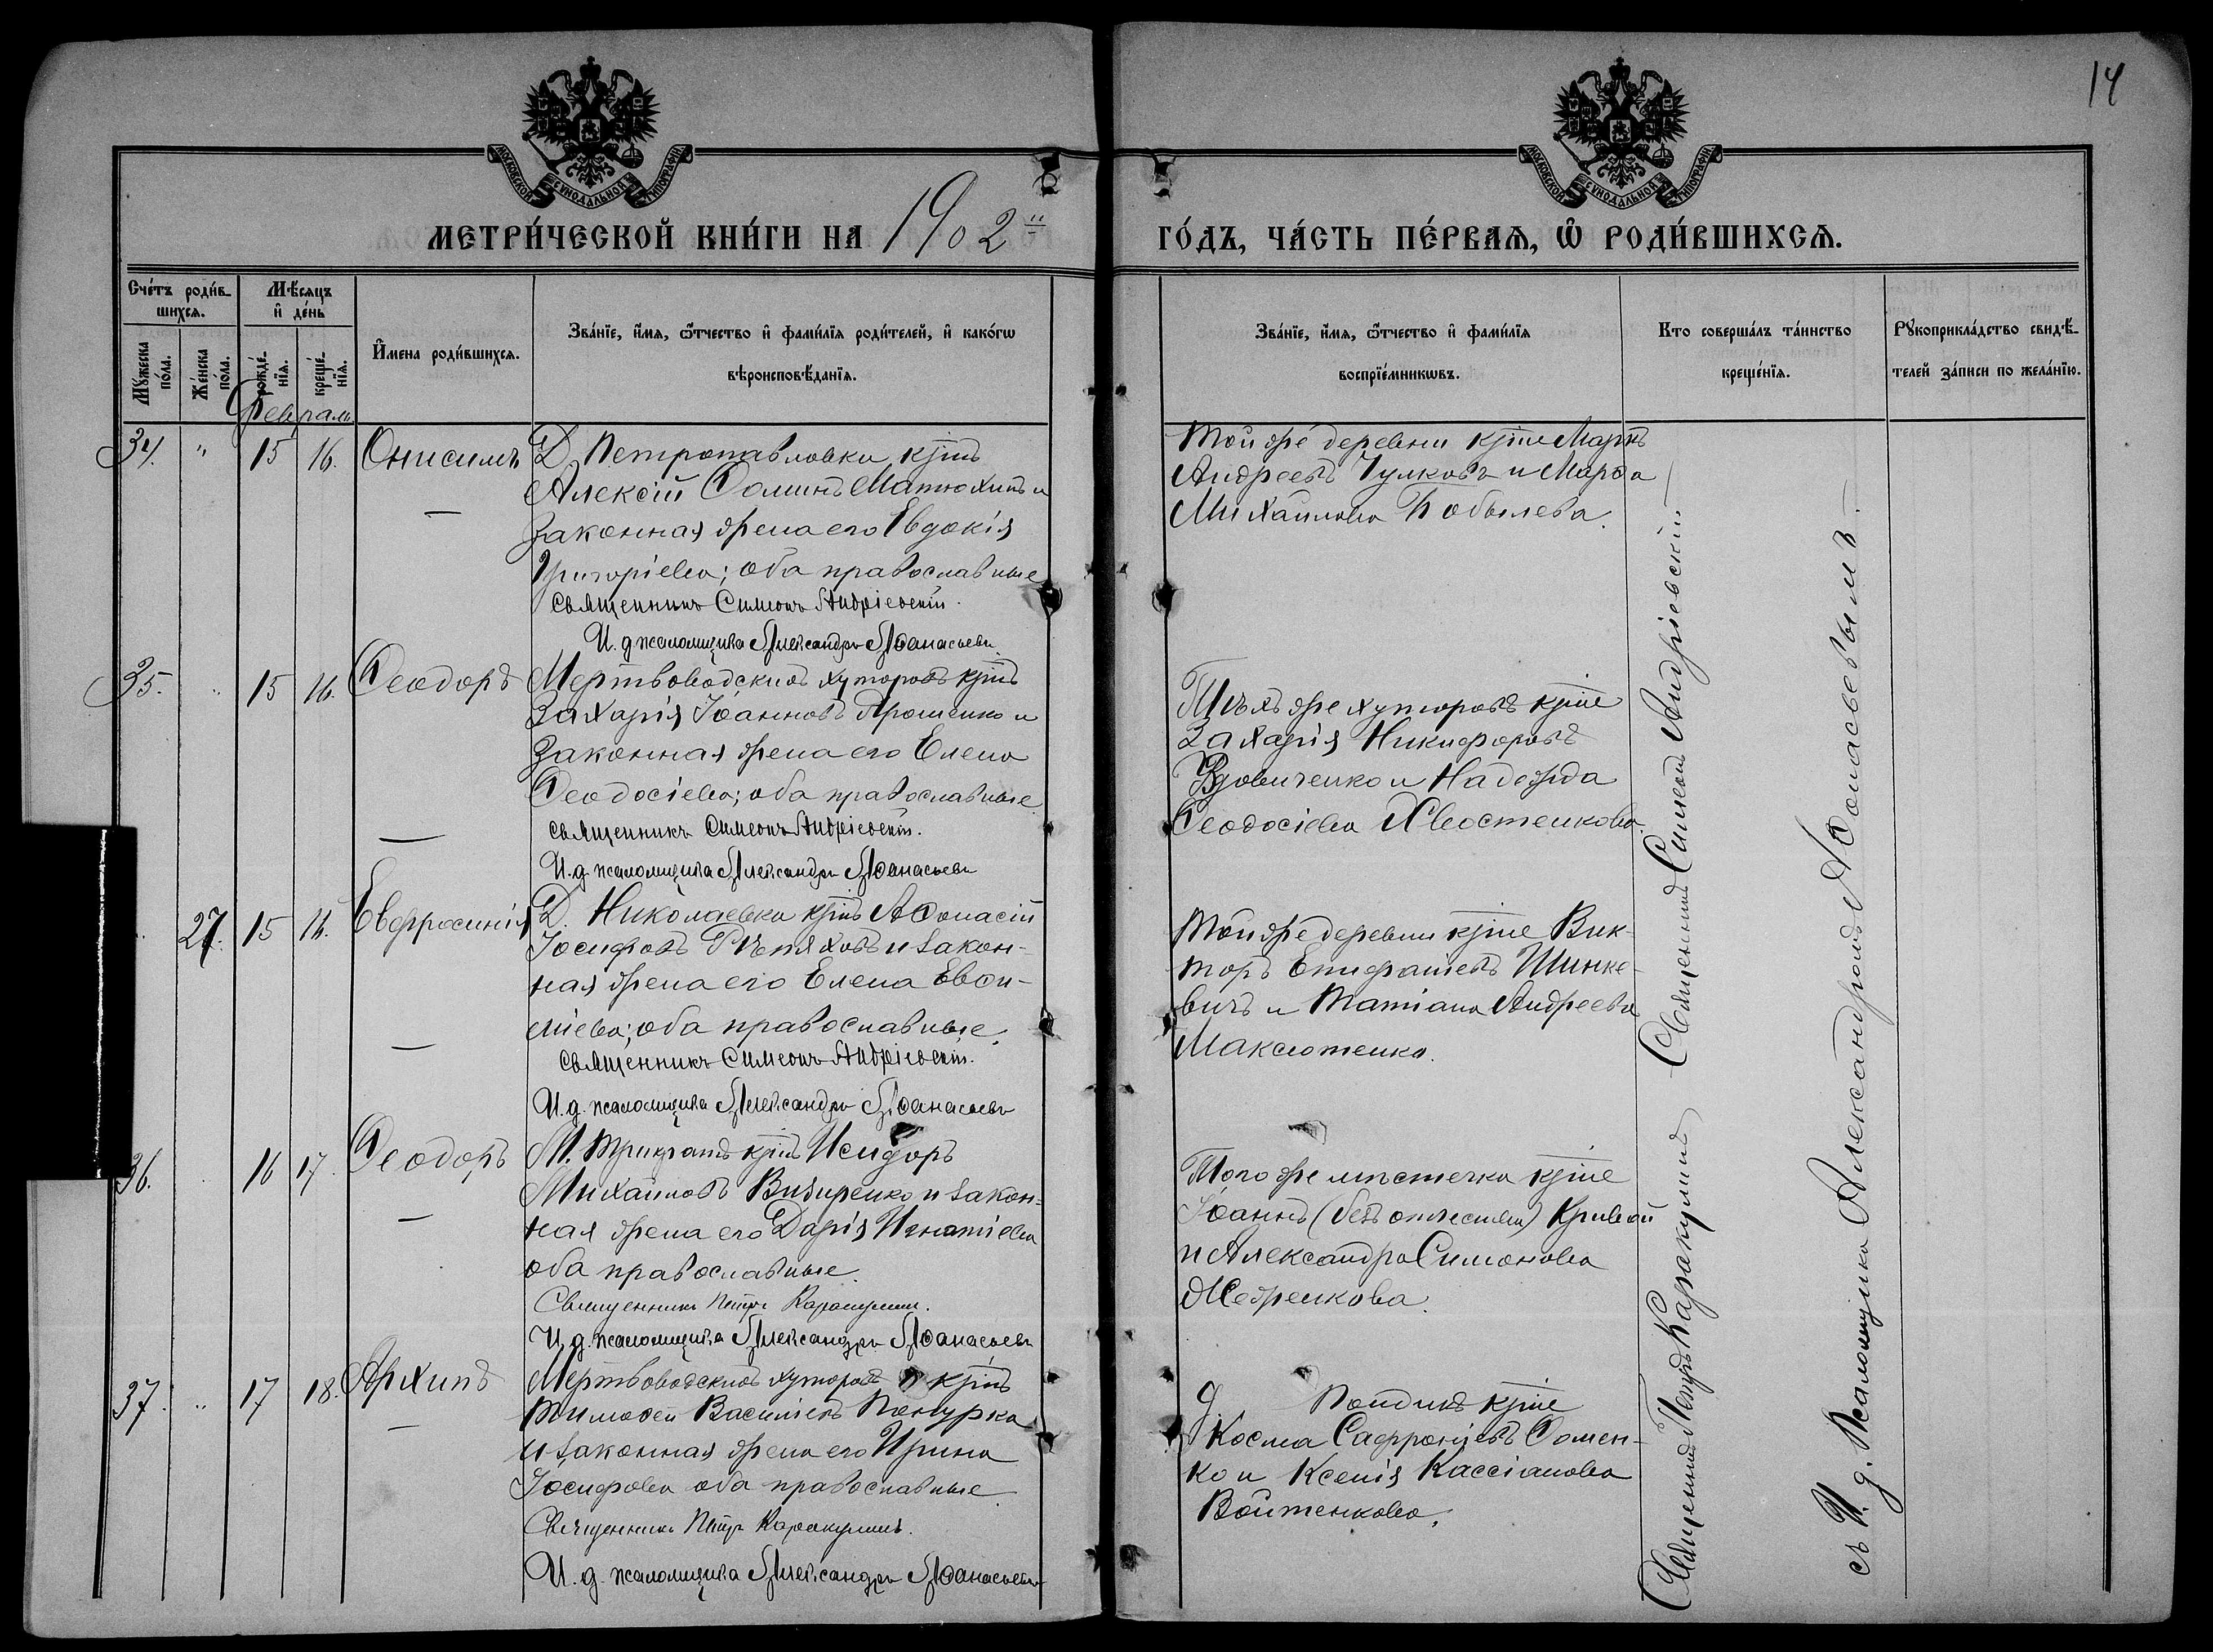 14
МОСКОВСКОЙ СѴНОДАЛЬНОЙ ТИПОГРАФІИ
МОСКОВСКОЙ СѴНОДАЛЬНОЙ ТИПОГРАФІИ
МЕТРИ́ЧЕСКОЙ КНИ́ГИ НА 1902й
ГО́ДЪ, ЧА́СТЬ ПЕ́РВАѦ, Ѡ҆ РОДИ́ВШИХСѦ.
Сче́тъ роди́в-
шихсѧ.
Мѣ́сяцъ
и҆ де́нь
Мꙋ́жеска
по́ла.
Же́нска
по́ла.
рожде́-
нїѧ.
креще́-
нїѧ.
И҆мена роди́вшихсѧ.
Зва́нїе, и҆́мѧ, ѻ҆́тчество и҆ фами́лїѧ роди́телей, и҆ како́гѡ
вѣроисповѣ́данїѧ.
Зва́нїе, и҆́мѧ, ѻ҆́тчество и҆ фами́лїѧ
воспрїе́мникѡвъ.
Кто соверша́лъ та́инство
креще́нїѧ.
Рꙋкоприкла́дство свидѣ́-
телей за́писи по жела́нїю.
Февраль
34. " 15 16. Онисимъ
Д. Петропавловки кр͞інъ
Алексій Ѳоминъ Матюхинъ и
законная жена его Евдокія
Григоріева; оба православные
Священникъ Симеонъ Андріевскій.
И. д. псаломщика Александръ Аѳанасьевъ
Той же деревни кр͞іне Маркъ
Андреевъ Чулковъ и Марѳа
Михайлова Бобылева.
35. " 15 16. Ѳеодоръ
Мертвоводскихъ хуторовъ кр͞інъ
Захарія Іоанновъ Ярошенко и
законная жена его Елена
Ѳеодосіева; оба православные
Священникъ Симеонъ Андріевскій.
И. д. псаломщика Александръ Аѳанасьевъ
Тѣхъ же хуторовъ кр͞іне
Захарія Никифоровъ
Вдовиченко и Надежда
Ѳеодосіева Хвостенкова.
27. 15 16. Евфросинія
Д. Николаевки кр͞інъ Аѳонасій
Іосифовъ Рѣпяховъ и закон-
ная жена его Елена Евѳи-
міева; оба православные.
Священникъ Симеонъ Андріевскій.
И. д. псаломщика Александръ Аѳанасьевъ
Той же деревни кр͞іне Вик-
торъ Епифаніевъ Шинке-
вичъ и Татіана Андреева
Максютенко.
36. 16 17. Ѳеодоръ
М. Трикратъ кр͞інъ Исидоръ
Михаиловъ Визиренко и закон-
ная жена его Дарія Игнатіева
оба православные.
Священникъ Петръ Каракулинъ.
И. д. псаломщика Александръ Аѳанасьевъ
Того же мѣстечка кр͞іне
Іоаннъ (безъ отчества) Кривой
и Александра Симонова
Жедренкова.
37. " 17 18. Архипъ
Мертвоводскихъ хуторовъ кр͞інъ
Тимоѳей Васильевъ Понурко
и законная жена его Ирина
Іосифова оба православные
Священникъ Петръ Каракулинъ.
И. д. псаломщика Александръ Аѳанасьевъ
д. кр͞іне
Косма Сафроніевъ Ѳомен-
ко и Ксенія Кассіанова
Войтенкова.
Священникъ Петръ Каракулинъ
Священникъ Симеонъ Андріевскій
съ И. д. Псаломщика Александромъ Аѳонасьевымъ.